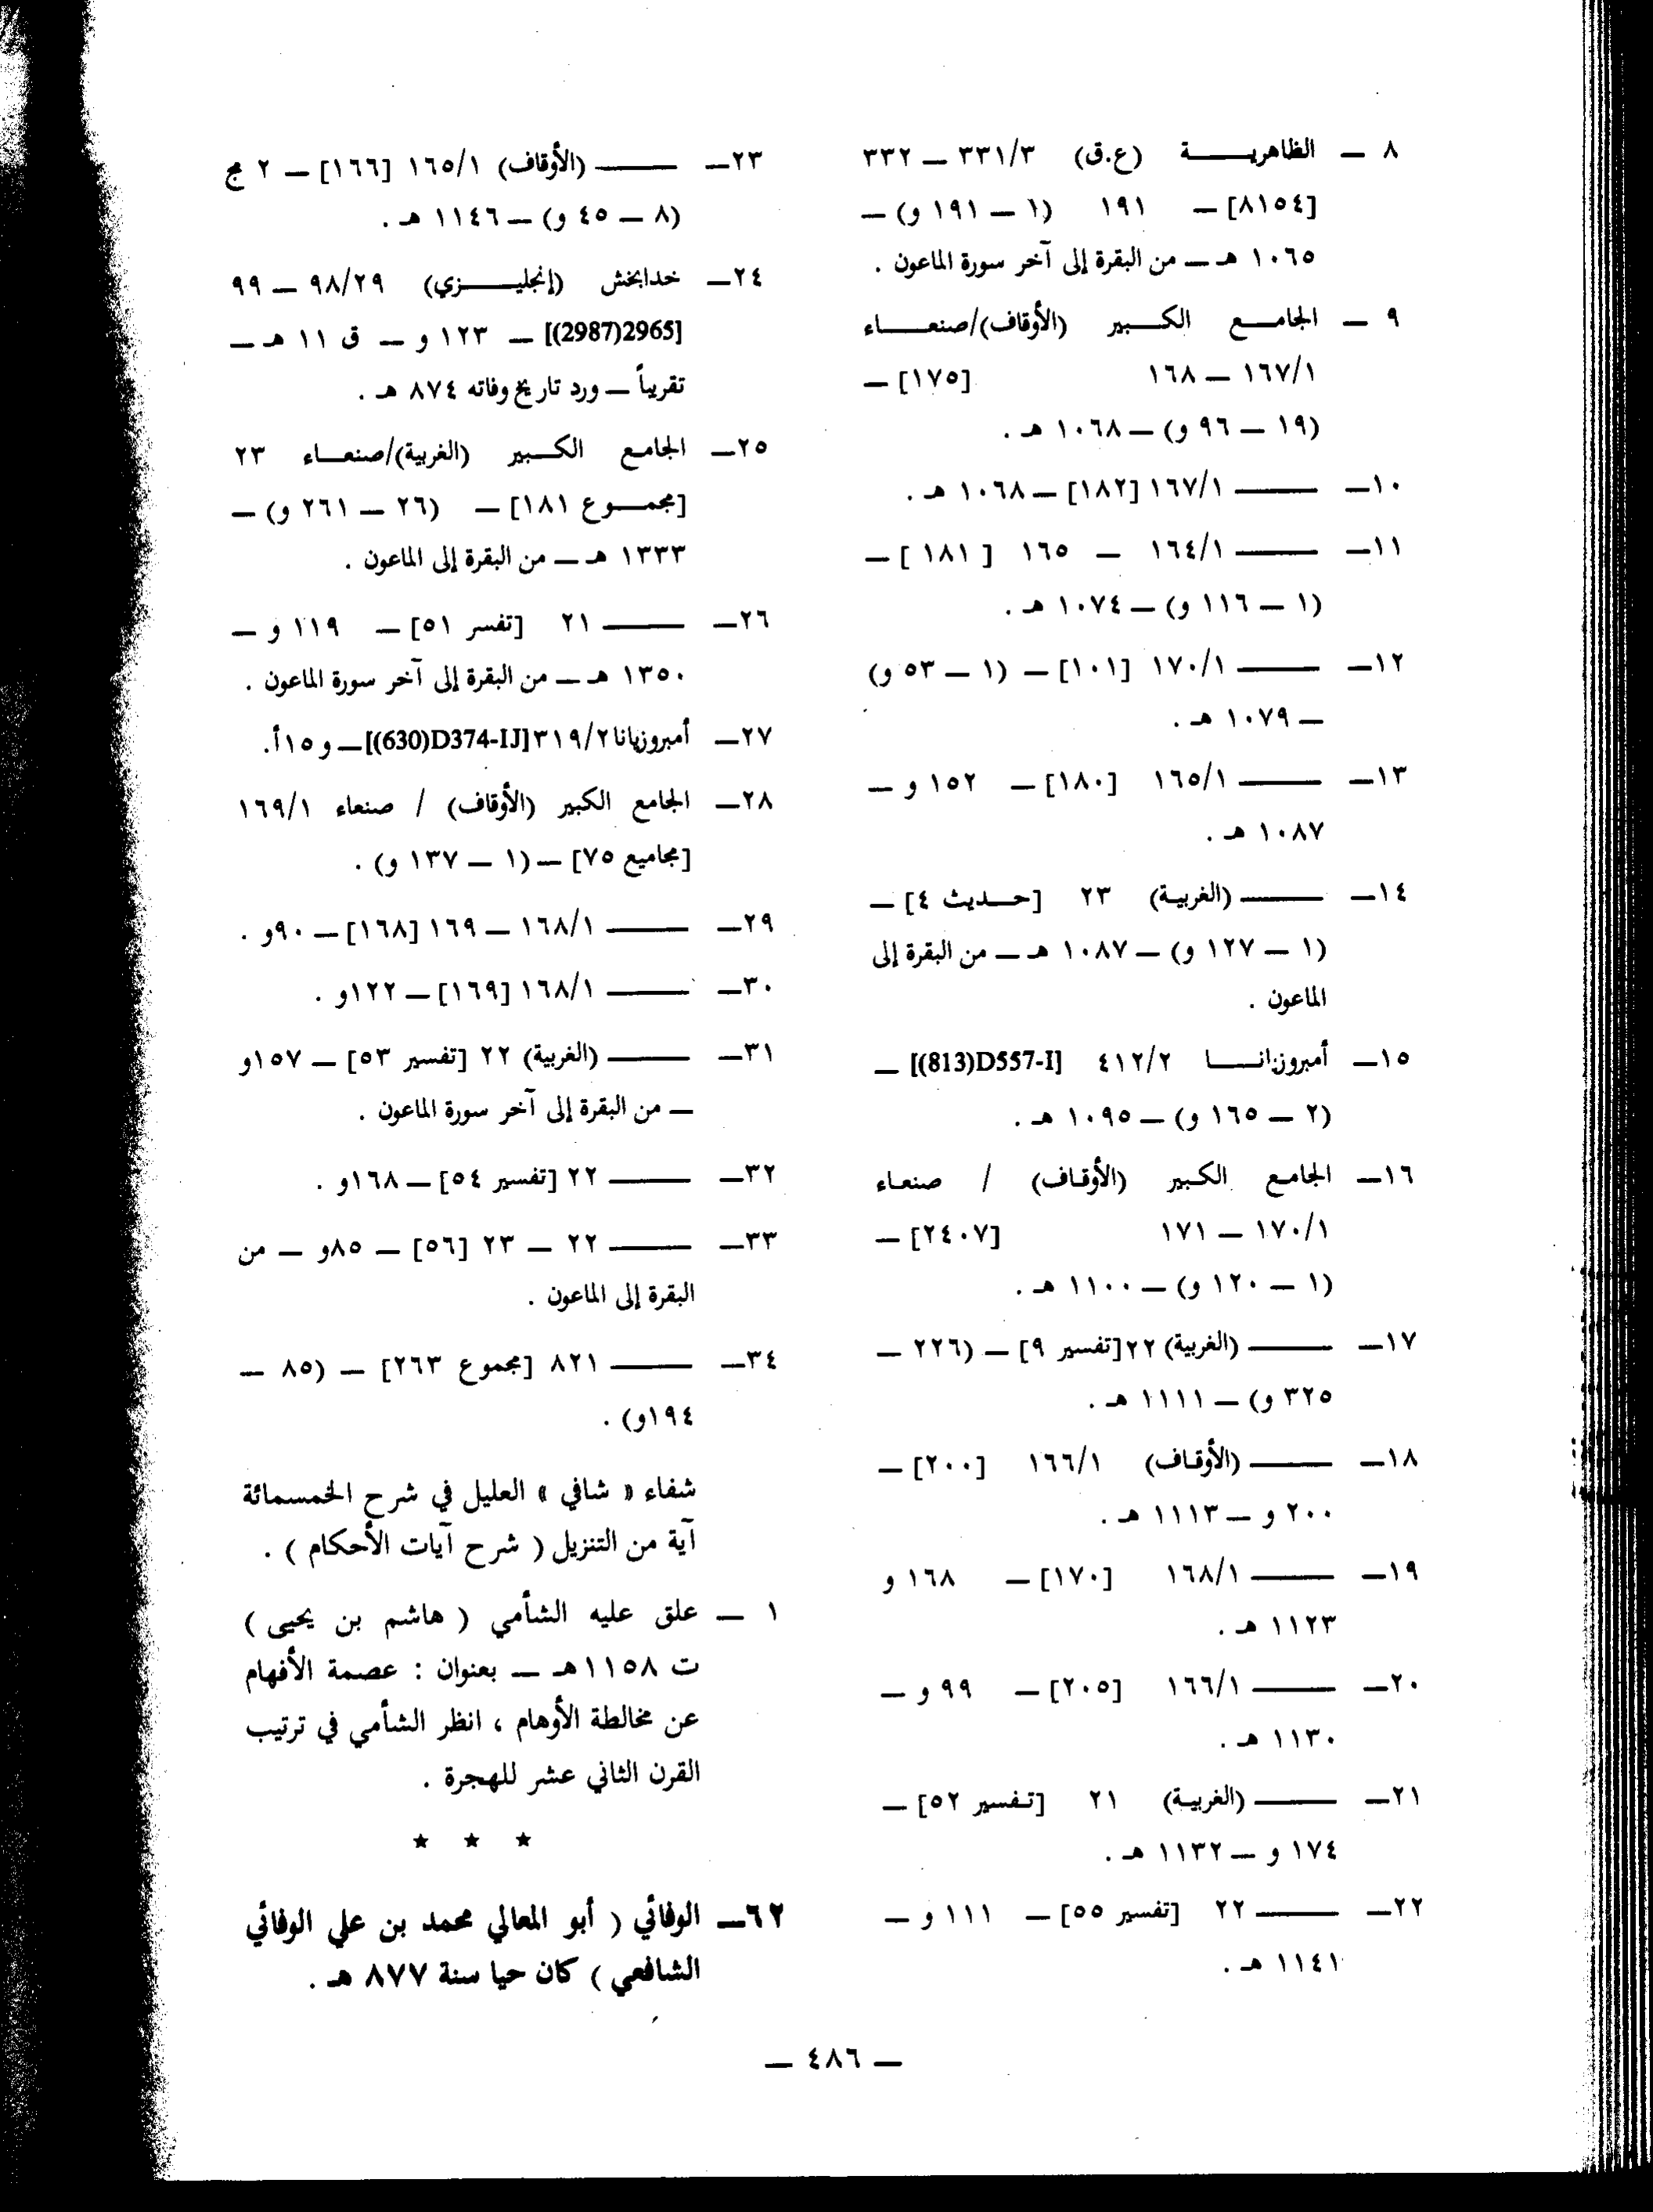 ٨ ــ الظاهريــــــة (ع.ق) ٣٣١/٣ ــ ٣٣٢
[٨١٥٤] ــ ١٩١ (١ ــ ١٩١ و) ــ
١٠٦٥ هـ ــ من البقرة إلى آخر سورة الماعون .
٩ ــ الجامـــع الكـــبير (الأوقاف)/صنعــــاء
١٦٧/١ ــ ١٦٨ [١٧٥] ــ
(١٩ ــ ٩٦ و) ــ ١٠٦٨ هـ .
١٠ــ ـــــــ ١٦٧/١ [١٨٢] ــ ١٠٦٨ هـ .
١١ــ ـــــــ ١٦٤/١ ــ ١٦٥ [ ١٨١ ] ــ
(١ ــ ١١٦ و) ــ ١٠٧٤ هـ .
١٢ــ ـــــــ ١٧٠/١ [١٠١] ــ (١ ــ ٥٣ و)
ــ ١٠٧٩ هـ .
١٣ــ ـــــــ ١٦٥/١ [١٨٠] ــ ١٥٢ و ــ
١٠٨٧ هـ .
١٤ــ ـــــــ (الغربيـة) ٢٣ [حـــديث ٤] ــ
(١ ــ ١٢٧ و) ــ ١٠٨٧ هـ ــ من البقرة إلى
الماعون .
١٥ــ أمبروزيانــــا ٤١٢/٢ [(813)D557-I] ــ
(٢ ــ ١٦٥ و) ــ ١٠٩٥ هـ .
١٦ــ الجامـع الكـبير (الأوقـاف) / صنعـاء
١٧٠/١ ــ ١٧١ [٢٤٠٧] ــ
(١ ــ ١٢٠ و) ــ ١١٠٠ هـ .
١٧ــ ـــــــ (الغربية) ٢٢ [تفسير ٩] ــ (٢٢٦ ــ
٣٢٥ و) ــ ١١١١ هـ .
١٨ــ ـــــــ (الأوقـاف) ١٦٦/١ [٢٠٠] ــ
٢٠٠ و ــ ١١١٣ هـ .
١٩ــ ـــــــ ١٦٨/١ [١٧٠] ــ ١٦٨ و
١١٢٣ هـ .
٢٠ــ ـــــــ ١٦٦/١ [٢٠٥] ــ ٩٩ و ــ
١١٣٠ هـ .
٢١ــ ـــــــ (الغربيـة) ٢١ [تـفسير ٥٢] ــ
١٧٤ و ــ ١١٣٢ هـ .
٢٢ــ ـــــــ ٢٢ [تفسير ٥٥] ــ ١١١ و ــ
١١٤١ هـ .
٢٣ــ ـــــــ (الأوقاف) ١٦٥/١ [١٦٦] ــ ٢ مج
(٨ ــ ٤٥ و) ــ ١١٤٦ هـ .
٢٤ــ خدابخش (إنجليــــــزي) ٩٨/٢٩ ــ ٩٩
[2965(2987)] ــ ١٢٣ و ــ ق ١١ هـ ــ
تقريباً ــ ورد تاريخ وفاته ٨٧٤ هـ .
٢٥ــ الجامع الكـــبير (الغربية)/صنعـــاء ٢٣
[مجمـــوع ١٨١] ــ (٢٦ ــ ٢٦١ و) ــ
١٣٣٣ هـ ــ من البقرة إلى الماعون .
٢٦ــ ـــــــ ٢١ [تفسر ٥١] ــ ١١٩ و ــ
١٣٥٠ هـ ــ من البقرة إلى آخر سورة الماعون .
٢٧ــ أمبروزيانا ٣١٩/٢ [(630)D374-IJ] ــ و١٥أ.
٢٨ــ الجامع الكبير (الأوقاف) / صنعاء ١٦٩/١
[مجاميع ٧٥] ــ (١ ــ ١٣٧ و) .
٢٩ــ ـــــــ ١٦٨/١ ــ ١٦٩ [١٦٨] ــ ٩٠و .
٣٠ــ ـــــــ ١٦٨/١ [١٦٩] ــ ١٢٢و .
٣١ــ ـــــــ (الغربية) ٢٢ [تفسير ٥٣] ــ ١٥٧و
ــ من البقرة إلى آخر سورة الماعون .
٣٢ــ ـــــــ ٢٢ [تفسير ٥٤] ــ ١٦٨و .
٣٣ــ ـــــــ ٢٢ ــ ٢٣ [٥٦] ــ ٨٥و ــ من
البقرة إلى الماعون .
٣٤ــ ـــــــ ٨٢١ [مجموع ٢٦٣] ــ (٨٥ ــ
١٩٤و) .
شفاء « شافي » العليل في شرح الخمسمائة
آية من التنزيل ( شرح آيات الأحكام ) .
١ ــ علق عليه الشأمي ( هاشم بن يحيى )
ت ١١٥٨هـ ــ بعنوان : عصمة الأفهام
عن مخالطة الأوهام ، انظر الشأمي في ترتيب
القرن الثاني عشر للهجرة .
★ ★ ★
٦٢ــ الوفائي ( أبو المعالي محمد بن علي الوفائي
الشافعي ) كان حيا سنة ٨٧٧ هـ .
ــ ٤٨٦ ــ